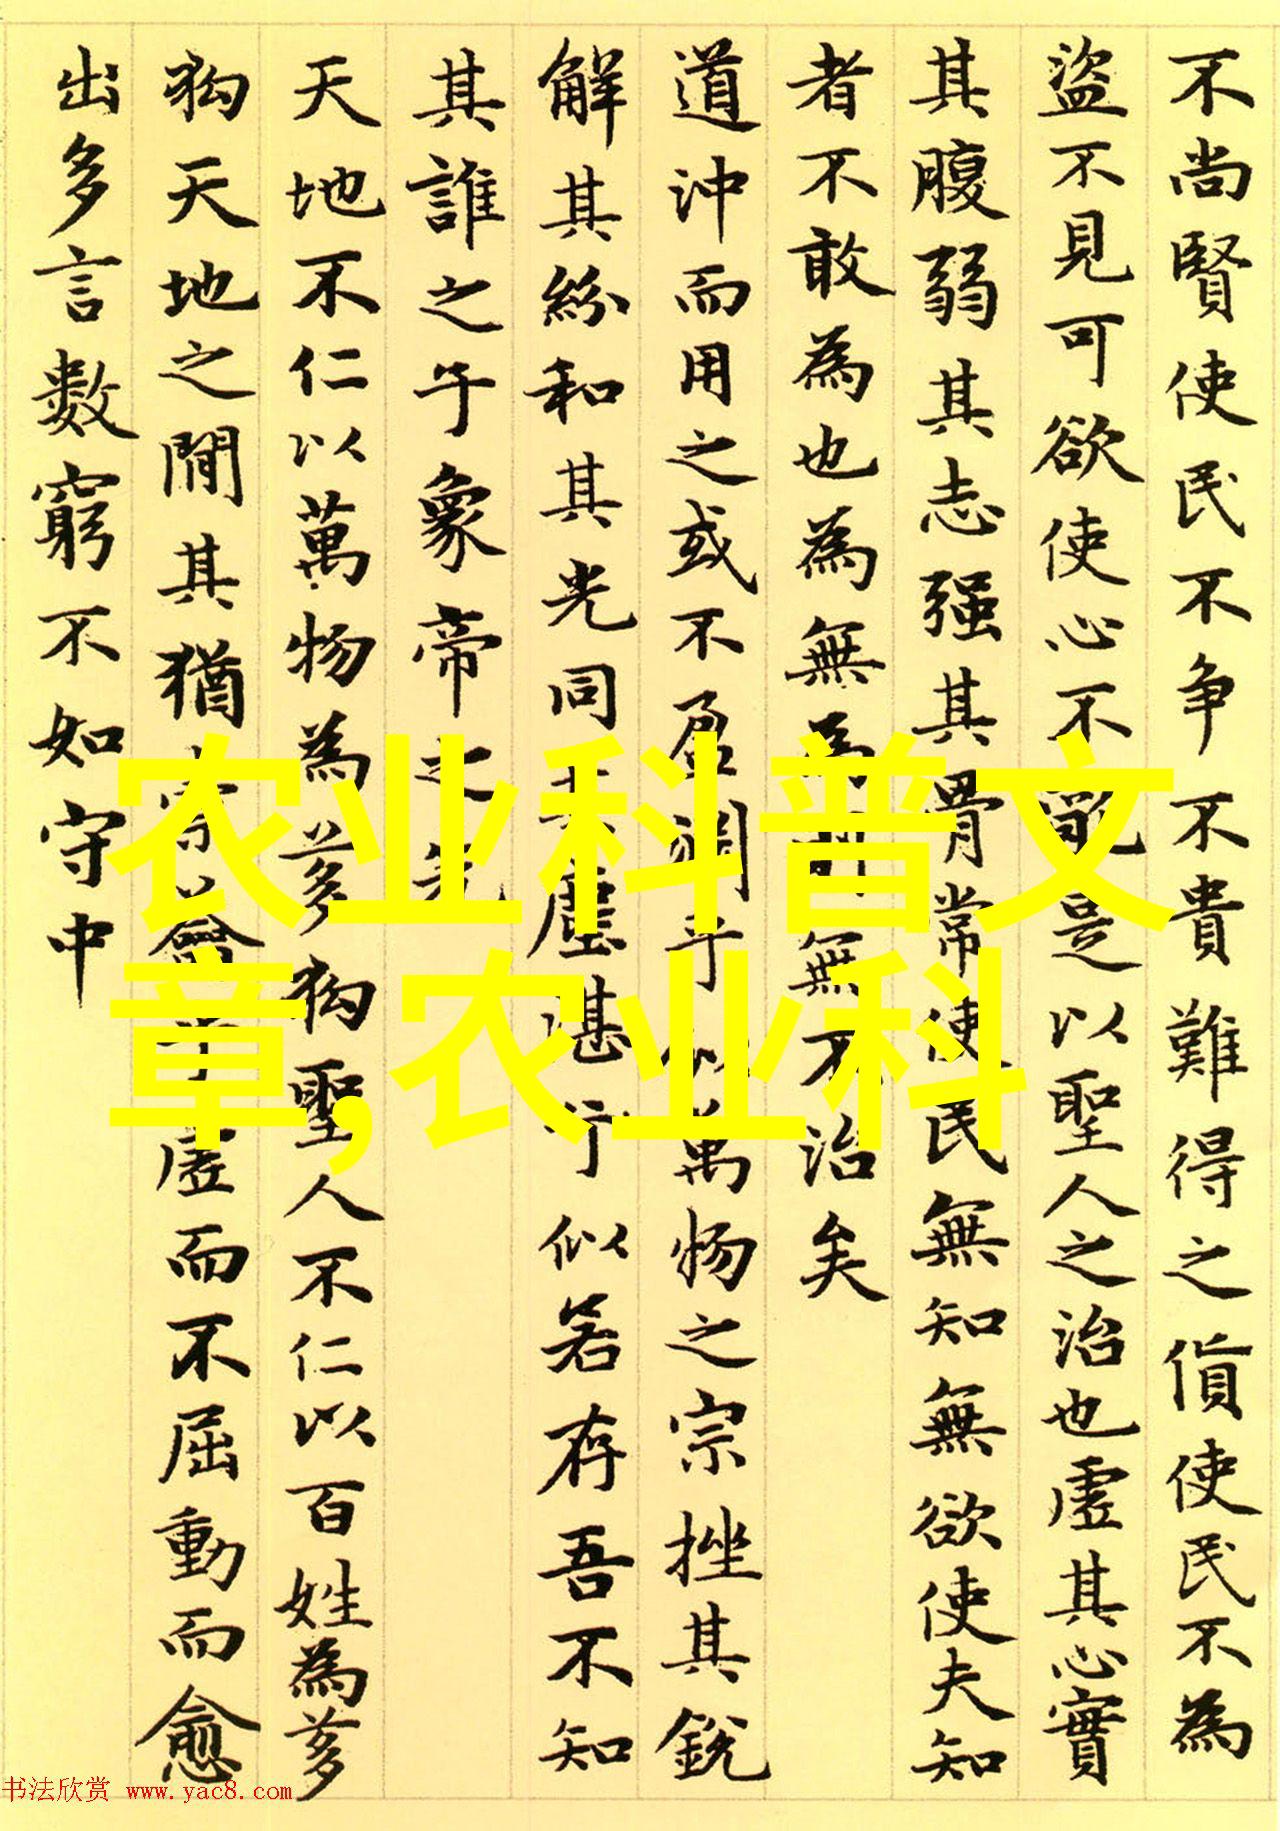 不尚賢使民不争不貴難得之貨使民不為
盜不見可欲使心不亂是以聖人之治也虛其心實
其腹弱其志强其骨常使民無知無欲使夫知
者不敢為也為無為則無不治矣
道沖而用之或不盈淵乎似萬物之宗挫其銳
解其紛和其光同其塵湛兮似若存吾不知
其誰之子象帝之先
天地不仁以萬物為芻狗聖人不仁以百姓為芻
狗天地之間其猶橐籥乎虛而不屈動而愈
出多言數窮不如守中
农业科普文
章,农业科
书法欣赏 www.yac8.com